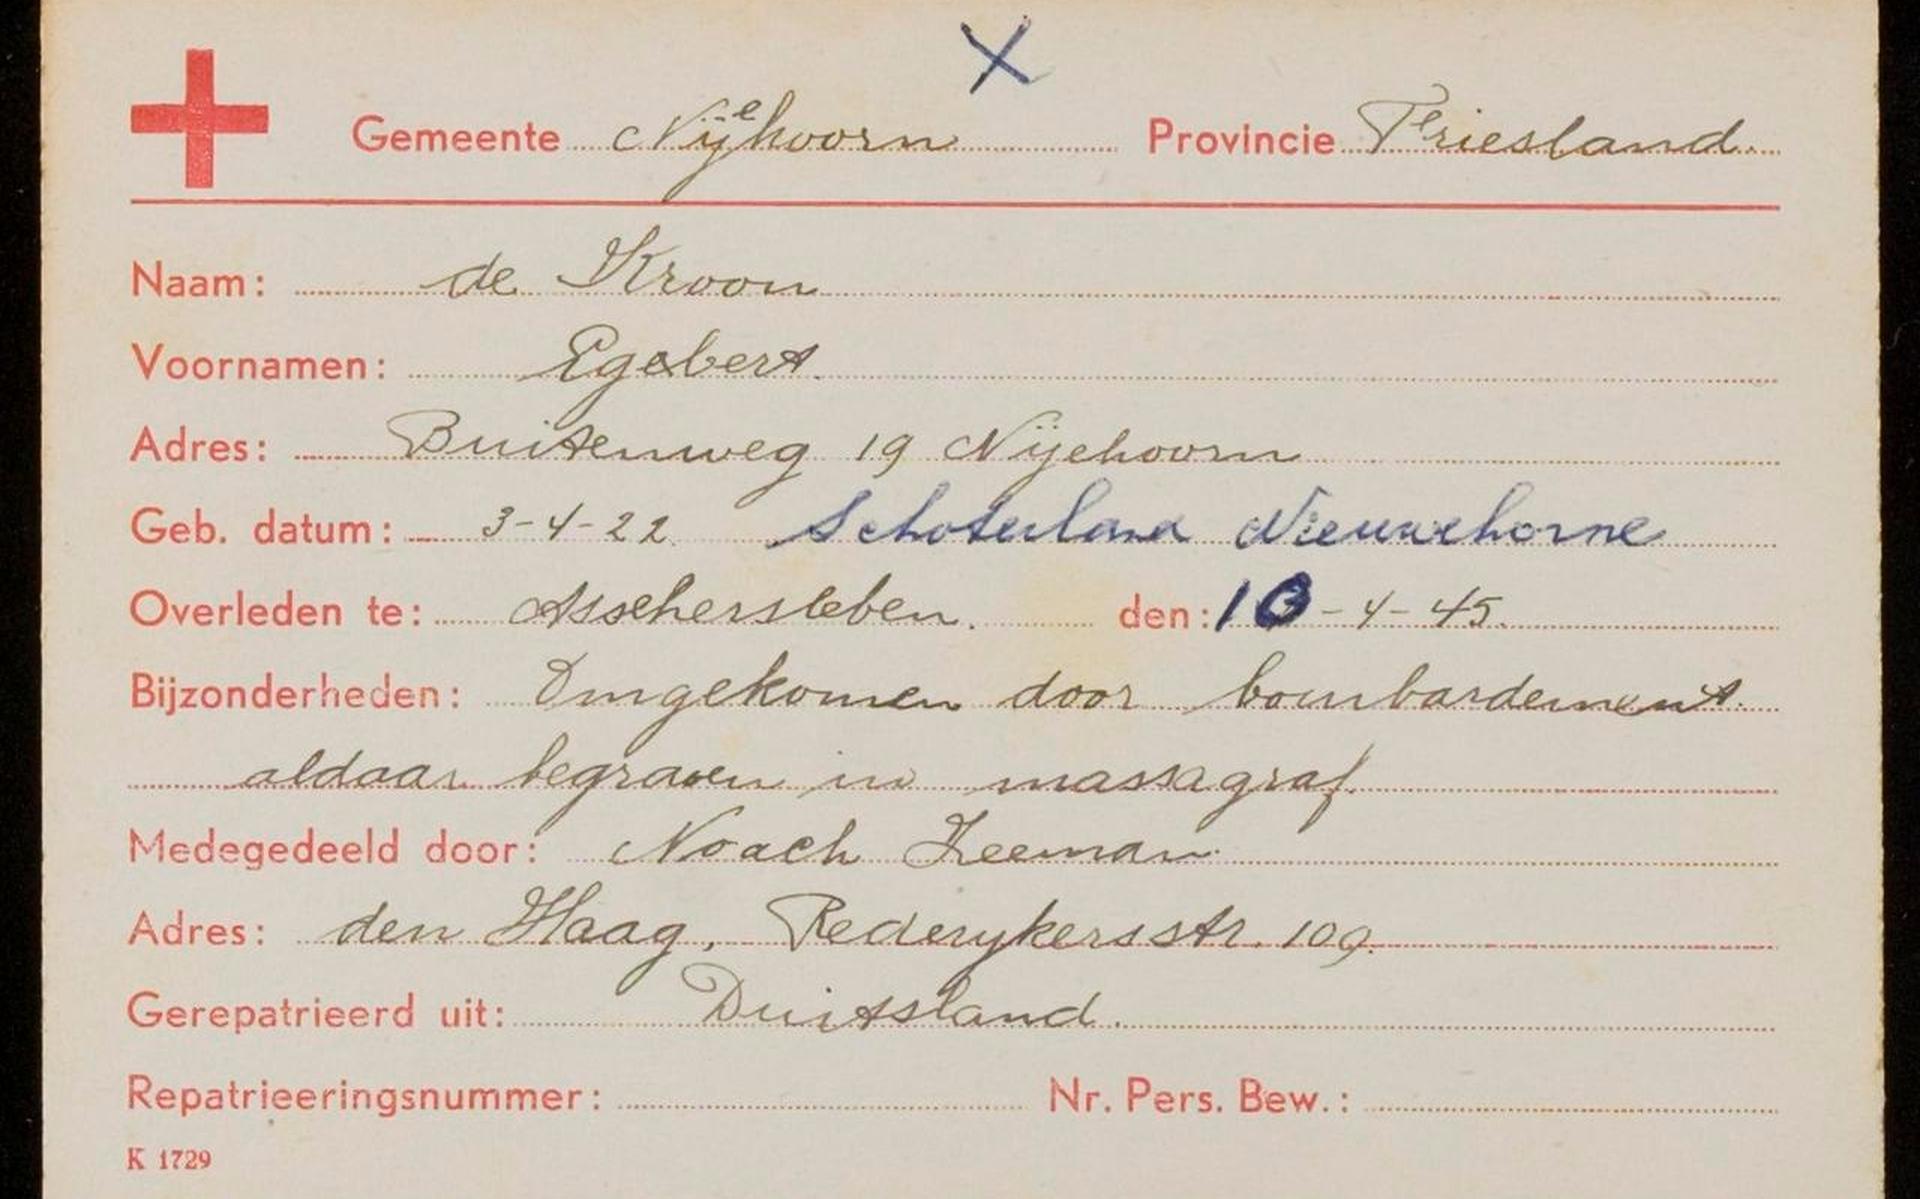 X
Gemeente Nijehoorn Provincie Friesland.
Naam: de Kroon
Voornamen: Egebert.
Adres: Buitenweg 19 Nijehoorn
Geb. datum: 3-4-22. Schoterland Nieuwehorne
Overleden te: Asschersleben. den: 10-4-45.
Bijzonderheden: Omgekomen door bombardement.
aldaar begraven in massagraf.
Medegedeeld door: Noach Zeeman.
Adres: den Haag, Rederykersstr. 109.
Gerepatrieerd uit: Duitsland.
Repatrieeringsnummer: Nr. Pers. Bew.:
K 1729